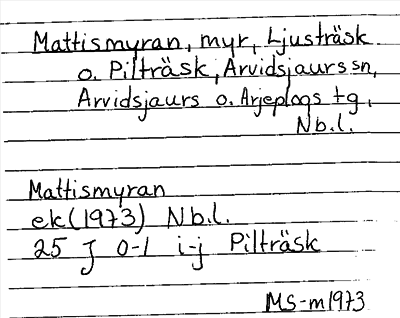 Mattismyran, myr, Ljusträsk
o. Pilträsk, Arvidsjaurs sn,
Arvidsjaurs o. Arjeplogs tg,
Nb.l.
Mattismyran
ek(1973) Nb.l.
25 J 0-1 i-j Pilträsk
MS-m1973